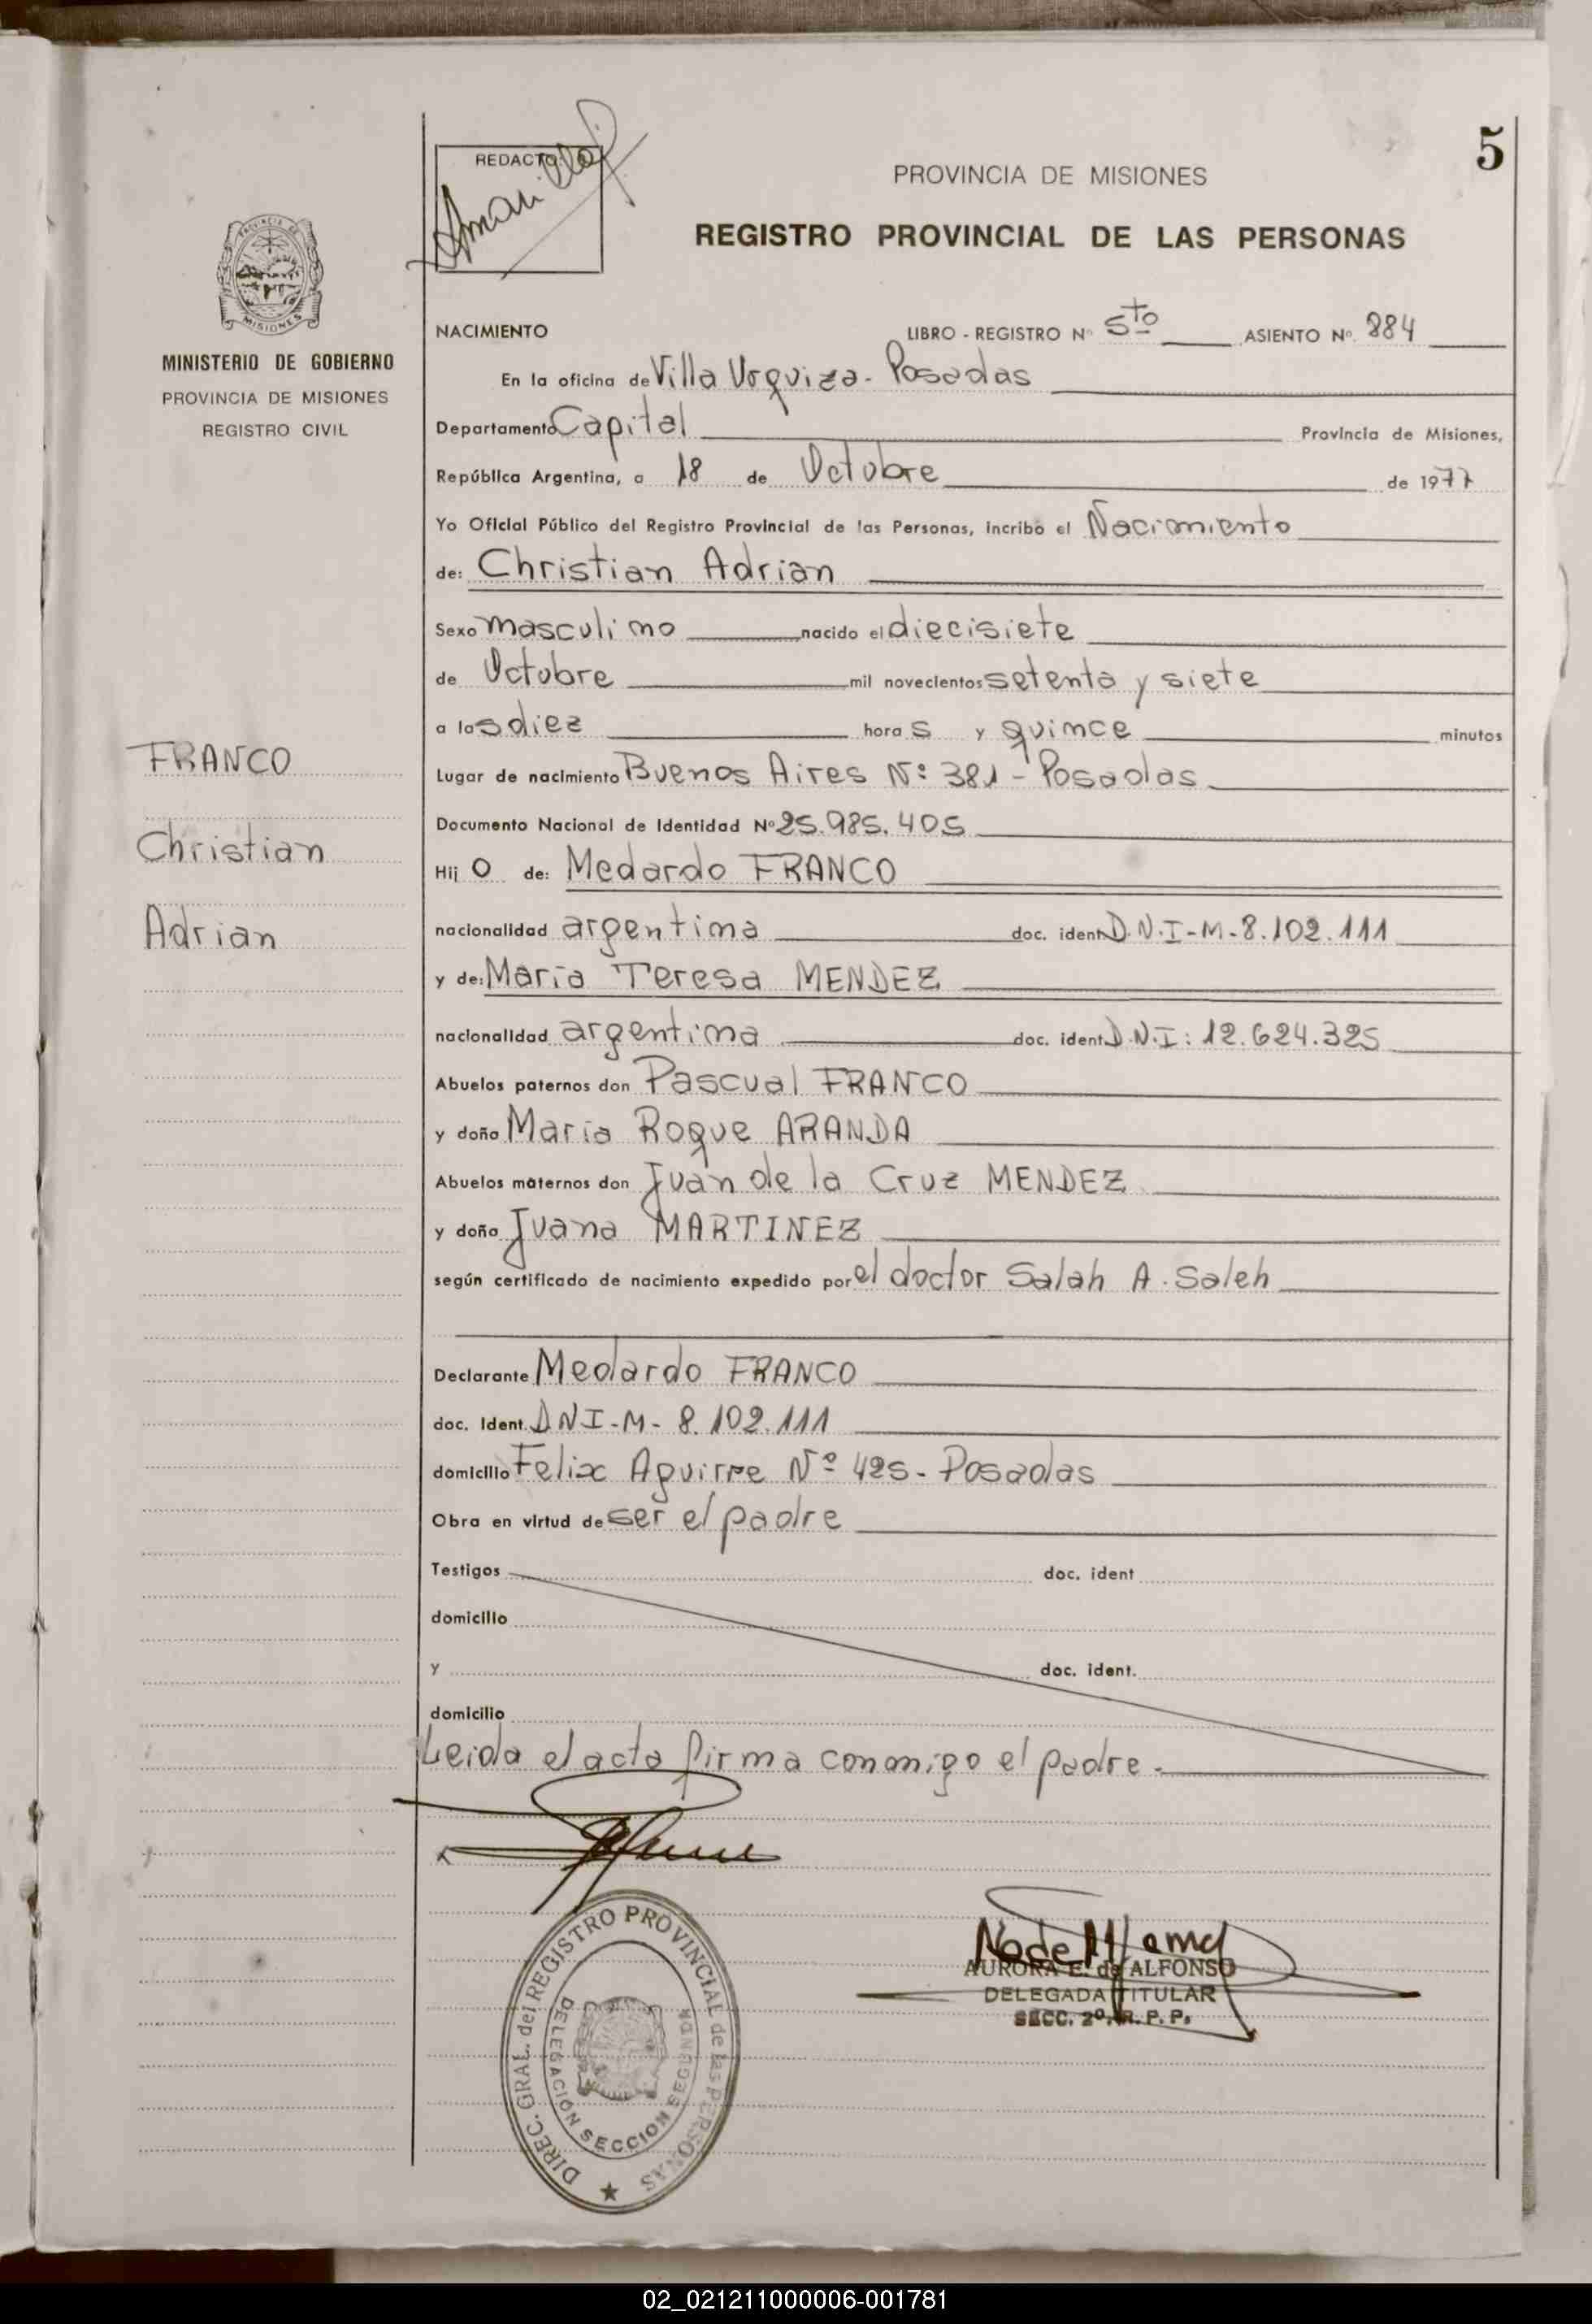 5
REDACTO:
PROVINCIA DE MISIONES
REGISTRO PROVINCIAL DE LAS PERSONAS
PROVINCIA DE MISIONES
MINISTERIO DE GOBIERNO
PROVINCIA DE MISIONES
REGISTRO CIVIL
NACIMIENTO LIBRO - REGISTRO Nº 5to ASIENTO Nº. 884
En la oficina de Villa Urquiza - Posadas
Departamento Capital Provincia de Misiones,
República Argentina, a 18 de Octubre de 1977
Yo Oficial Público del Registro Provincial de las Personas, incribo el Nacimiento
de: Christian Adrian
Sexo masculino nacido el diecisiete
de Octubre mil novecientos setenta y siete
a las diez horas y quince minutos
FRANCO
Christian
Adrian
Lugar de nacimiento Buenos Aires Nº: 381 - Posadas
Documento Nacional de Identidad Nº 25.985.405
Hijo de: Medardo FRANCO
nacionalidad argentina doc. ident D.N.I-M-8.102.111
y de: María Teresa MENDEZ
nacionalidad argentina doc. ident. D.N.I: 12.624.325
Abuelos paternos don Pascual FRANCO
y doña María Roque ARANDA
Abuelos maternos don Juan de la Cruz MENDEZ
y doña Juana MARTINEZ
según certificado de nacimiento expedido por el doctor Salah A. Saleh
Declarante Medardo FRANCO
doc. Ident. DNI-M-8.102.111
domicilio Felix Aguirre Nº 425 - Posadas
Obra en virtud de ser el padre
Testigos doc. ident
domicilio
y doc. ident.
domicilio
Leida el acta firma conmigo el padre.-
DIREC. GRAL. del REGISTRO PROVINCIAL de las PERSONAS
DELEGACIÓN SECCION SEGUNDA
AURORA E. de ALFONSO
DELEGADA TITULAR
SECC. 2º. R. P. P.
02_021211000006-001781